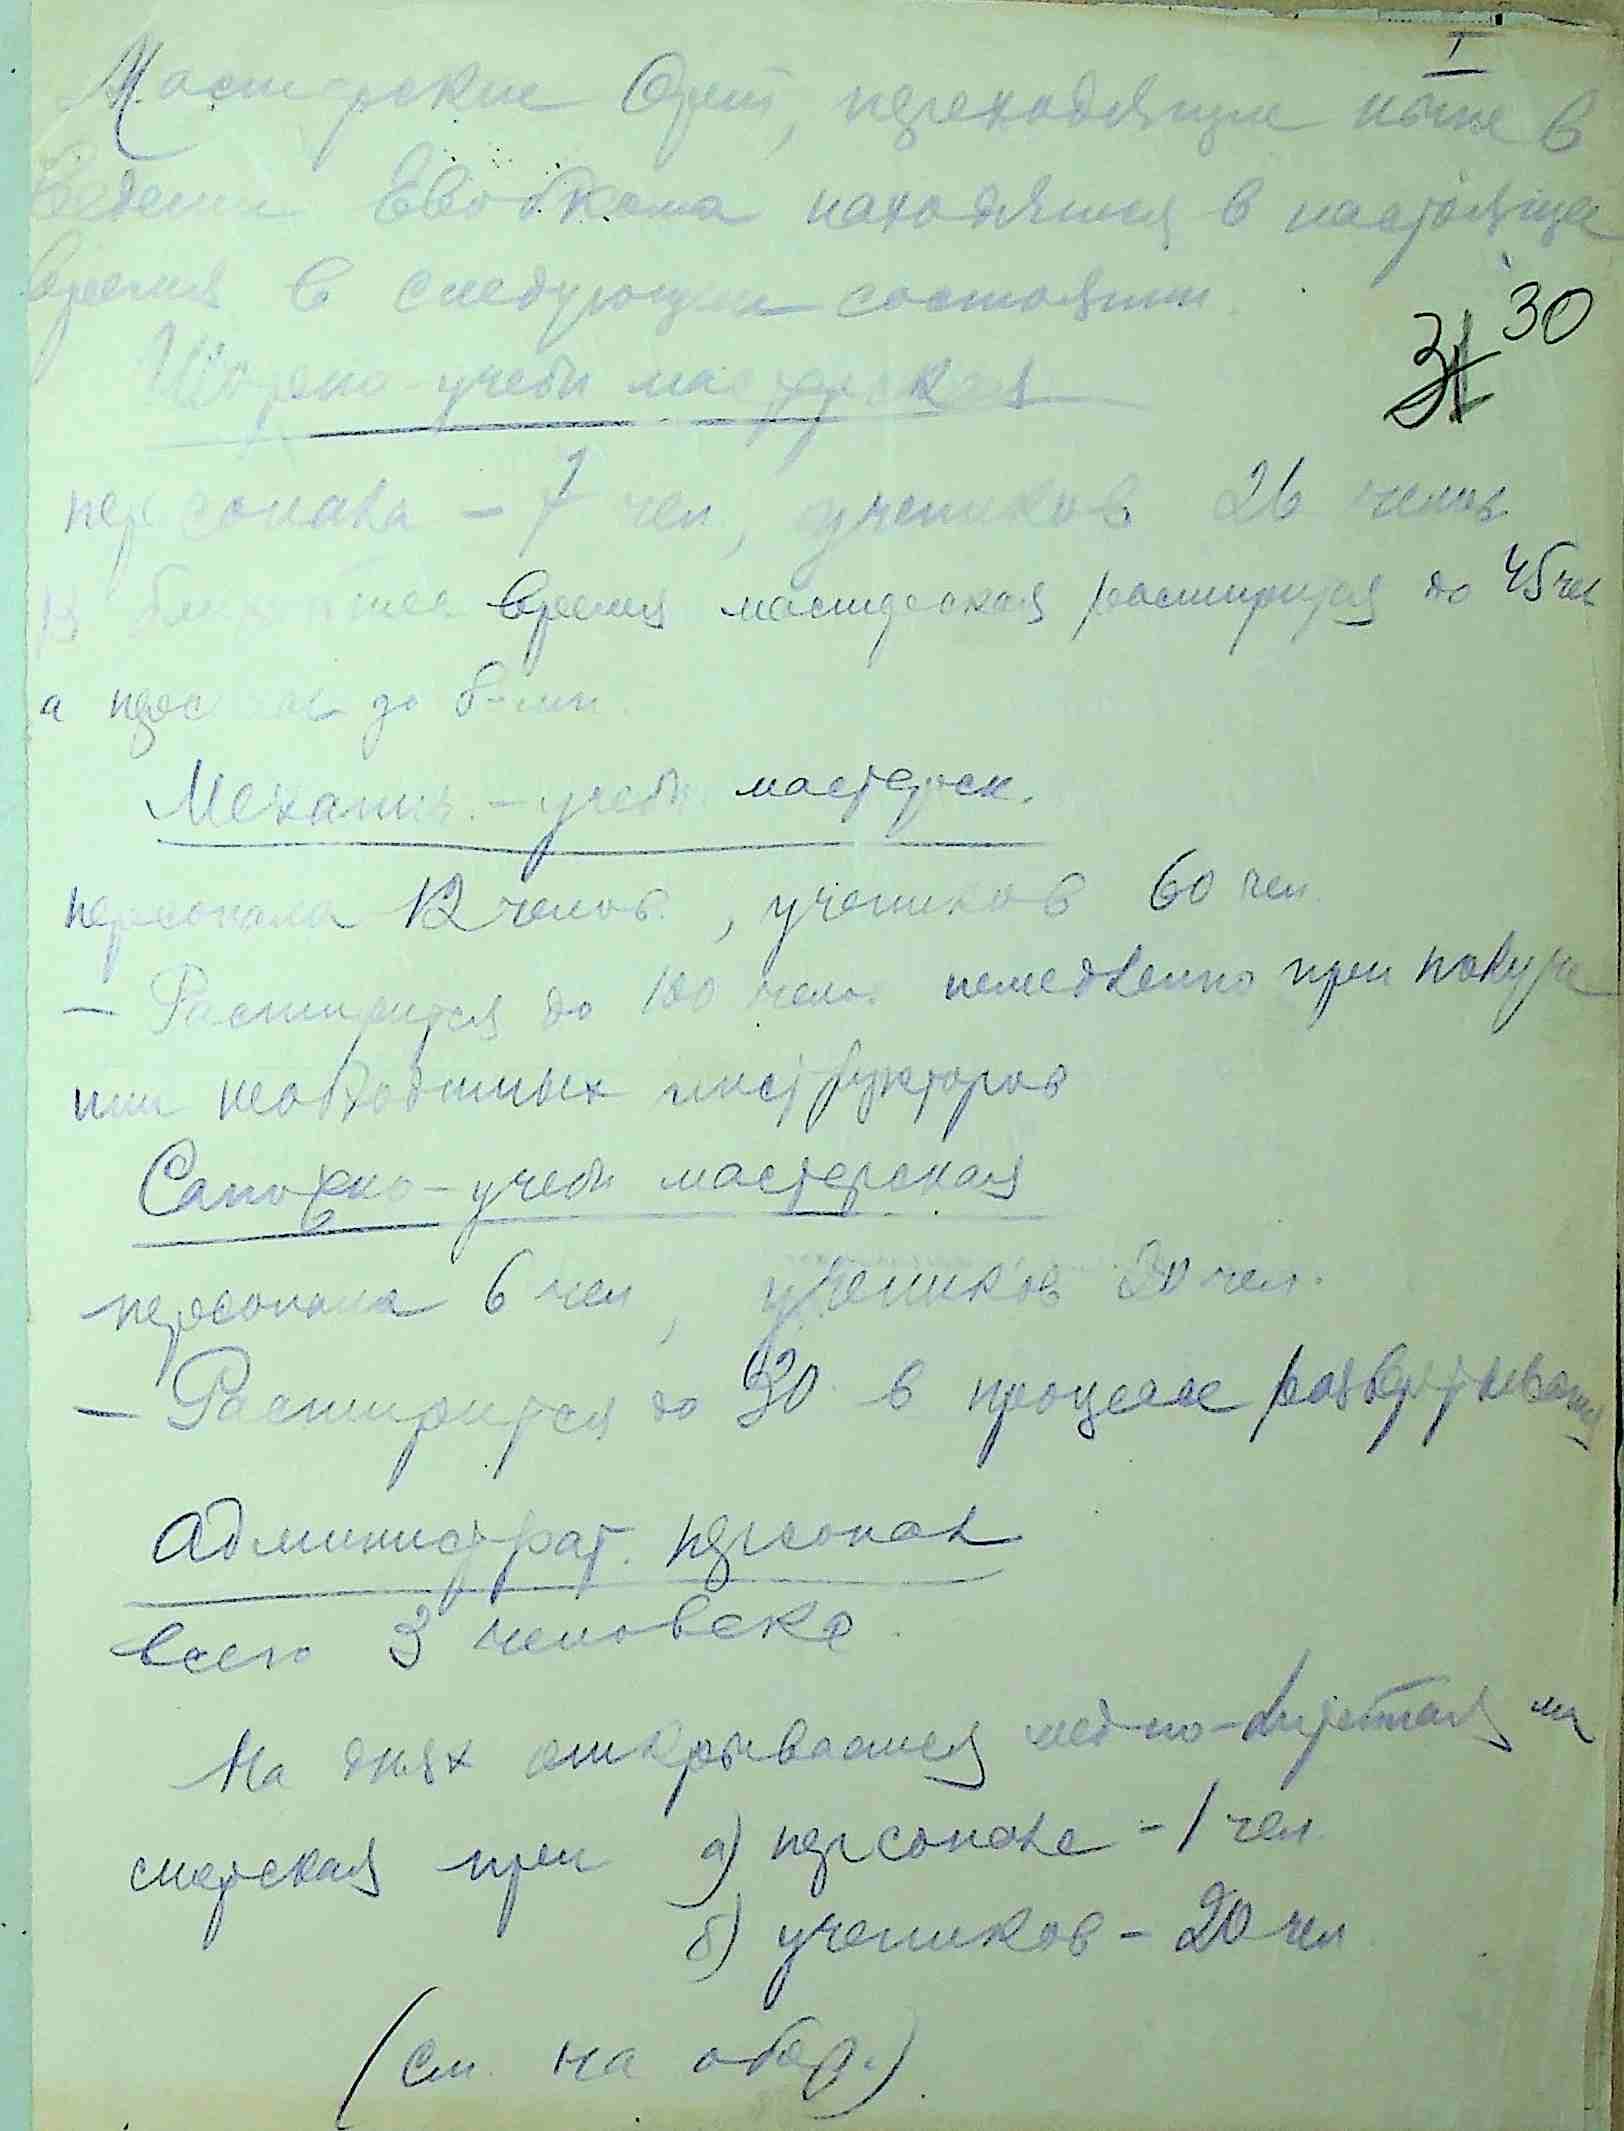 I
Мастерские Орт, переходящие ныне в
ведение Евобкома находятся в настоящее
время в следующем состоянии.
30
31
Шорно-учебн мастерская
персонала – 7 чел, учеников 26 челов
В ближайшее время мастерская расширится до 45 чел
а персонал до 8-ми.
Механич. – учебн мастерск.
персонала 12 челов., учеников 60 чел.
— Расширится до 100 чело. немедленно при получе
нии необходимых инструкторов
Сапожно-учебн мастерская
персонала 6 чел, учеников 20 чел.
— Расширится до 30 в процессе развертывания
Административ. персонал
всего 3 человека.
На днях открывается медно- ма
стерская при а) персонале – 1 чел.
б) учеников – 20 чел
(см. на обор.)